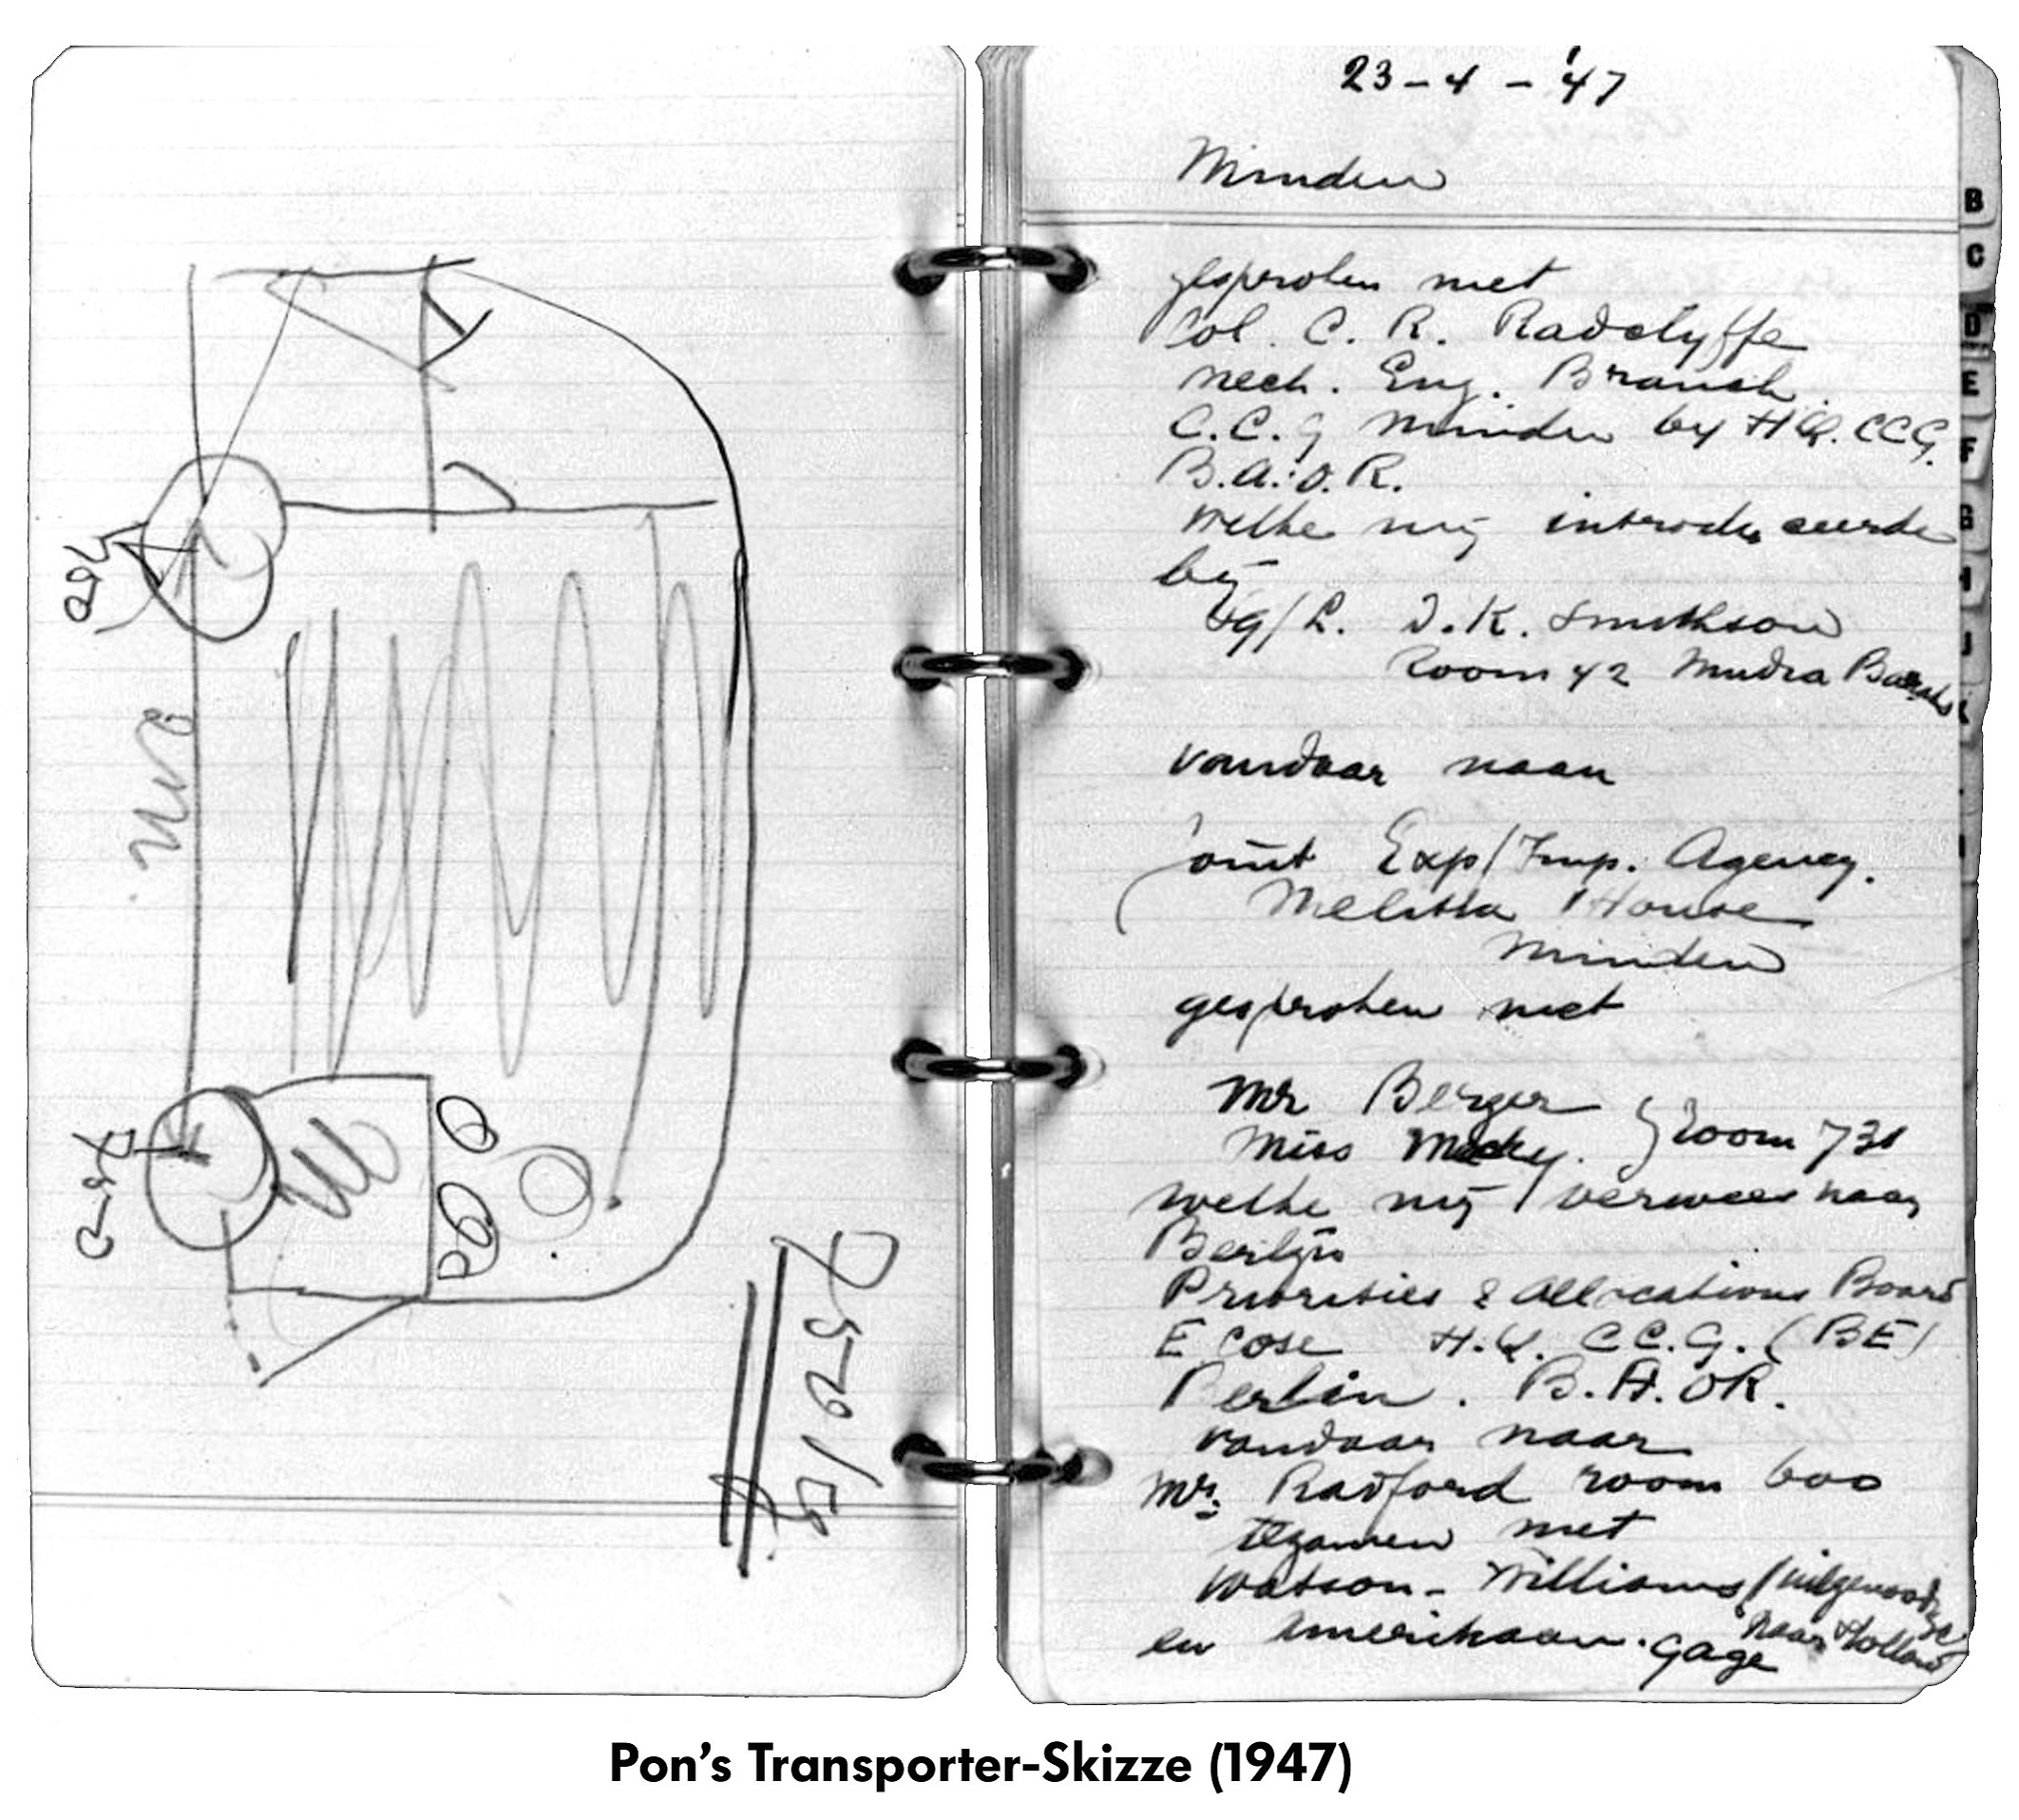 750 kg
750
750
23-4-'47
Minden
gesproken met
Col. C. R. Radclyffe
Mech. Eng. Branch.
C.C.G Minden by H.Q. CCG.
B.A.O.R.
welke mij introduceerde
bij
D.K. Smithson
Room 42 Mudra Barracks
vandaar naar
Joint Exp/Imp. Agency.
Melitta House
Minden
gesproken met
Mr Berger } Room 731
Miss Macky.
welke mij verwees naar
Berlijn
Priorities & Allocations Board
Ecose H.Q. C.C.G. (BE)
Berlin. B.A.OR.
vandaar naar
Mr. Radford room 600
tezamen met
Watson-Williams / uitgenoodigd
naar Holland
en Amerikaan. Gage
B
C
D
E
F
G
H
J
K
Pon's Transporter-Skizze (1947)